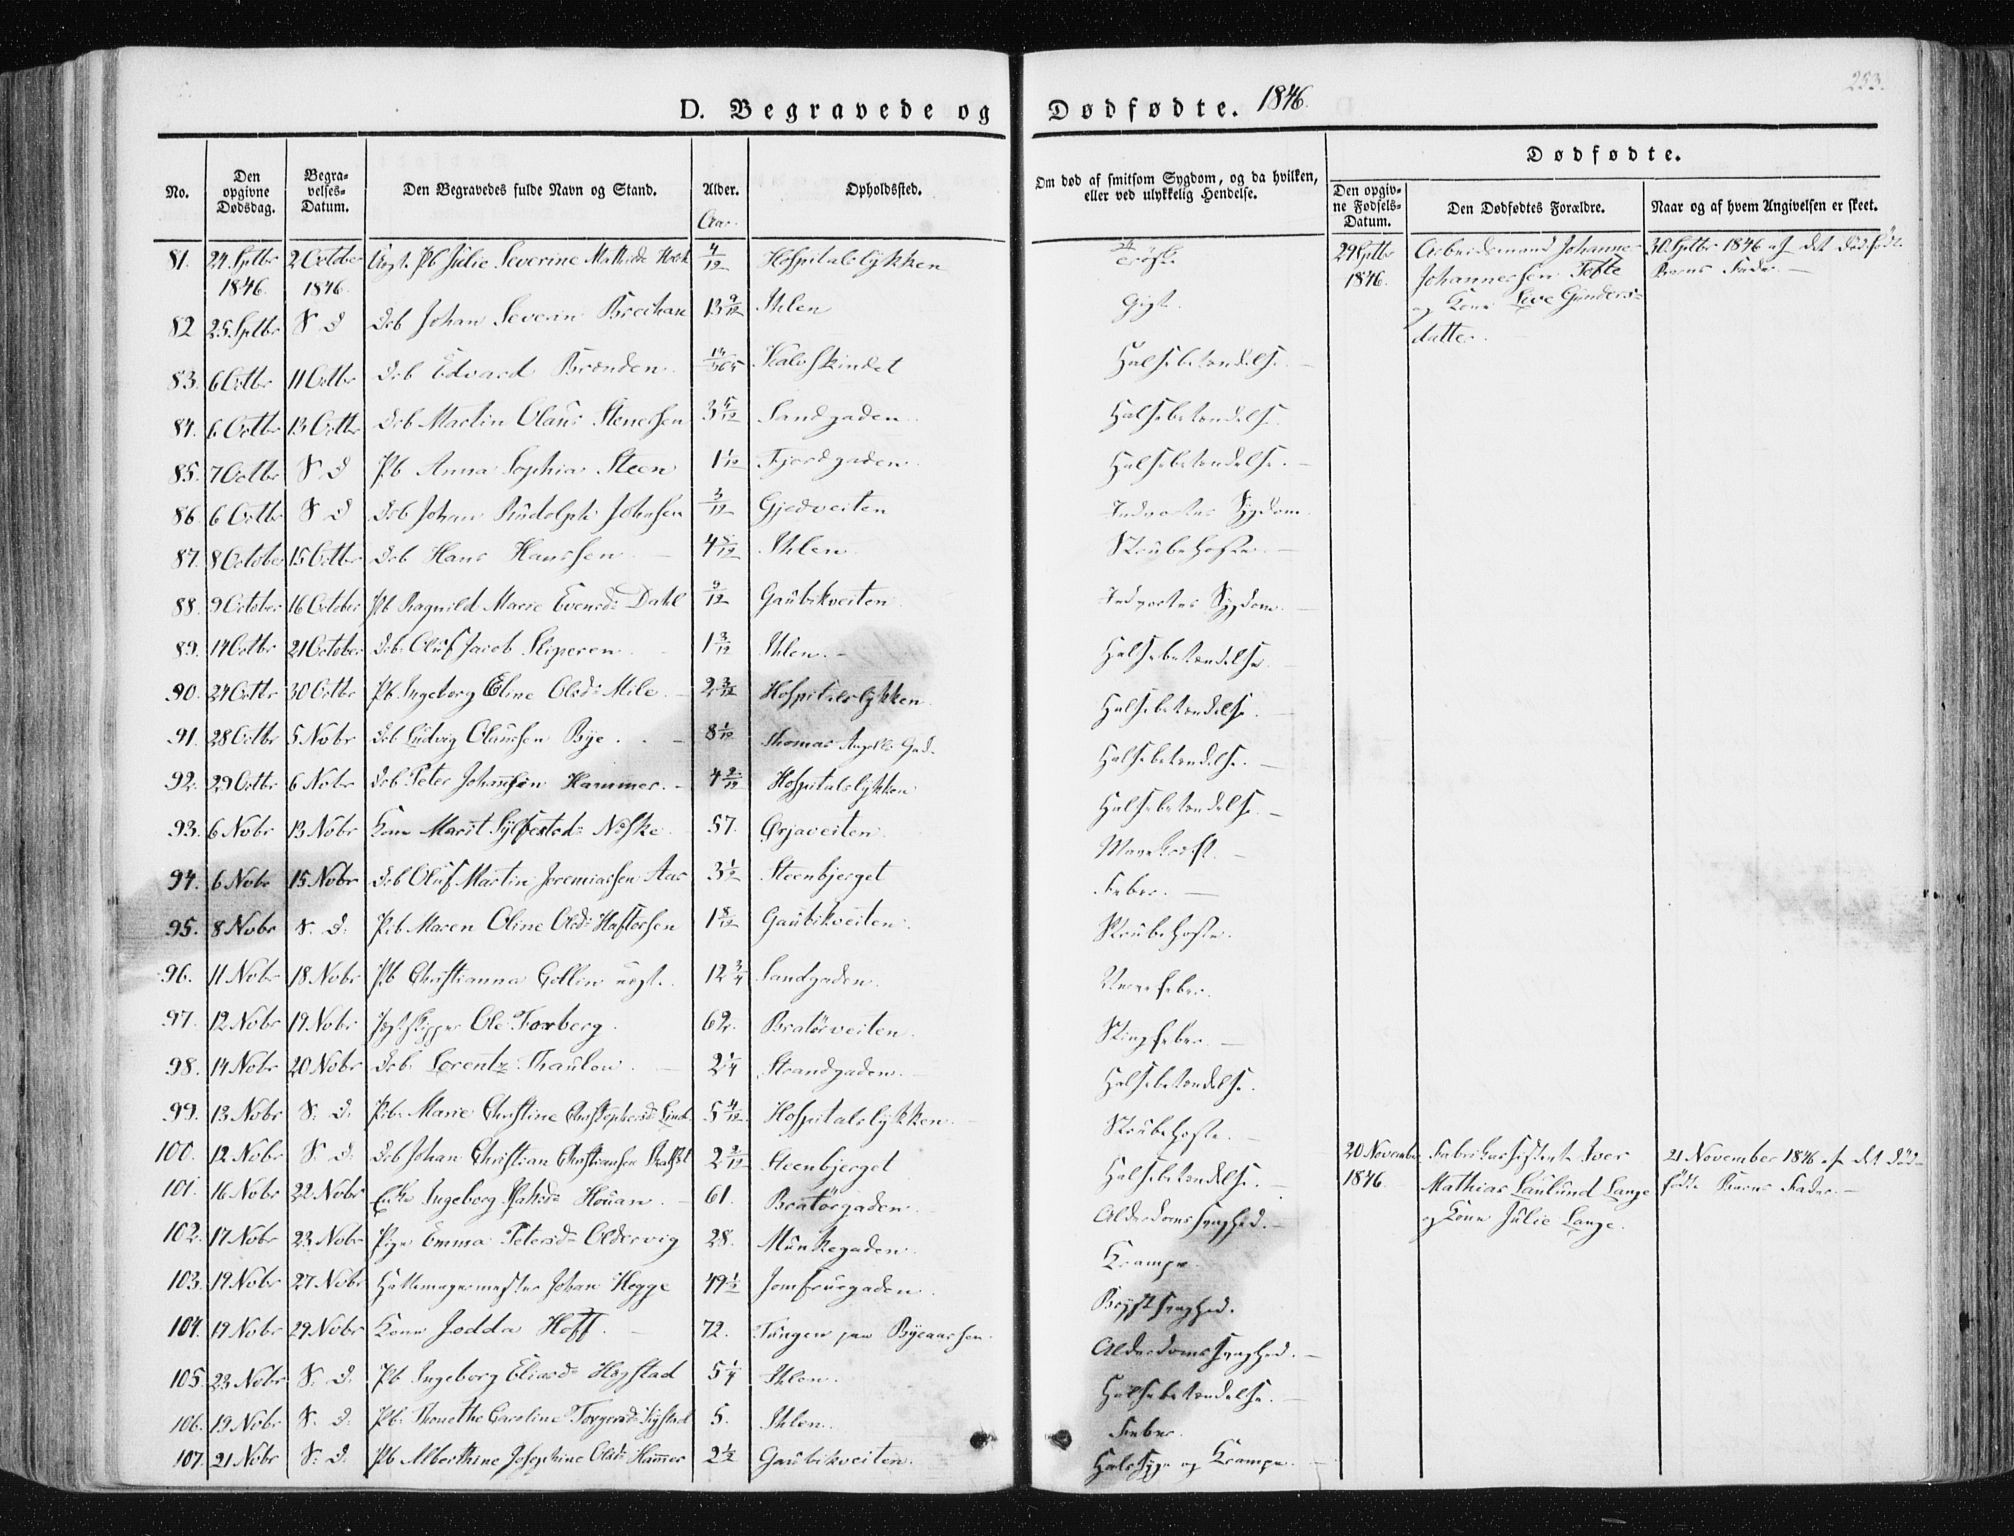 233.
D. Begravede og Dødfødte. 1846.
No.
Den opgivne Dødsdag.
Begravelses-Datum.
Den Begravedes fulde Navn og Stand.
Alder.
Aar.
Opholdssted.
Om død af smitsom Sygdom, og da hvilken, eller ved ulykkelig Hendelse.
Dødfødte.
Den opgivne Fødsels-Datum.
Den Dødfødtes Forældre.
Naar og af hvem Angivelsen er skeet.
81. 24 Septbr 1846. 2 October 1846. Pb Julie Severine 4/12 Hospitalslykken
29 Septbr 1846. Arbeidsmand Johannes Johannessen Tofte og Kone Live Gunders- datter. 30 Septbr 1846 af det dødfødte Barns Fader.
82 25 Septbr S. D. Db Johan Severin 13 9/12 Ihlen Gigt.
83. 6 Octbr 11 Octbr Db Edvard Brænden. 14/365 Kalvskindet Halsebetændelse.
84. 6 Octbr 13 Octbr Db Martin Olaus Stenersen 3 5/12 Sandgaden. Halsebetændelse.
85. 7 Octbr S. D. Pb Anna Sophia Steen 1 1/12 Fjordgaden. Halsebetændelse.
86 6 Octbr S D Db Johan Rudolph Johnsen 3/12 Gjedveiten Indvortes Sygdom.
87. 8 October 15 Octbr Db Hans Hanssen 4 8/12 Ihlen. Strubehoste.
88. 9 October 16 October Pb Ragnild Marie Evensd: Dahl 9/12 Gaubikveiten Indvortes Sygdom.
89. 14 Octbr 21 October Db. Oluf Jacob Skiperen 1 3/12 Ihlen. Halsebetændelse
90. 24 Octbr 30 Octbr Pb. Ingeborg Eline Olsd: Mile. 2 3/12 Hospitalslykken. Halsebetændelse.
91. 28 Octbr 5 Nobr Db Ludvig Olaussen Bye. 8 1/12 Thomas Angells Gad. Halsebetændelse.
92. 29 Octbr 6 Nobr Db Peter Johansen Hammer. 4 2/12 Hospitalslykken Halsebetændelse.
93. 6 Nobr 13 Nobr Kone Marit Sylfestsd: Noske 57. Ørjaveiten.
94. 6 Nobr 15 Nobr Db Oluf Martin Jeremiassen Aas 3 1/2 Steenbjerget Feber.
95. 8 Nobr S. D. Pb Maren Oline Olsd: Haftorsen 1 8/12 Gaubikveiten. Strubehoste.
96. 11 Nobr 18 Nobr Pb Christianna Collin uægt. 12 3/4 Sandgaden. Nervefeber.
97. 12 Nobr 19 Nobr Jægtskipper Ole Forberg. Bratørveiten.
98. 14 Nobr 20 Nobr Db. Lorentz Thaulow. 2 1/4 Strandgaden. Halsebetændelse.
99. 13 Nobr S. D. Pb. Marie Christine Christophersd: 5 4/12 Hospitalslykken. Strubehoste.
100. 12 Nobr S. D. Db Johan Christian Christiansen 2 9/12 Steenbjerget Halsebetændelse.
20 November 1846. Iver Mathias Laulund Lange og Kone Julie Lange. 21 November 1846 af det dødfødte Barns Fader.
101. 16 Nobr 22 Nobr Enke Ingeborg Houan. 61. Bratørgaden Alderdomssvaghed.
102. 17 Nobr 23 Nobr Pige Emma Petersd: Oldervig 28. Munkegaden. Krampe.
103. 19 Nobr 27 Nobr Hattemagermester Johan Hegge 49 1/2 Jomfruegaden. Brystsvaghed.
104. 19 Nobr 29 Nobr Kone Jodda Hoff. 72. Tungen paa Byeaasen. Alderdomssvaghed.
105. 23 Nobr S. D. Pb Ingeborg Eliasd: Hegstad 5 1/4 Ihlen. Halsebetændelse.
106. 19 Nobr S. D. Pb. Caroline 5. Ihlen. Feber.
107. 21 Nobr S. D. Pb Alberthine Josephine Olsd: Hammer 2 1/2 Gaubikveiten. Halssyge og Krampe.